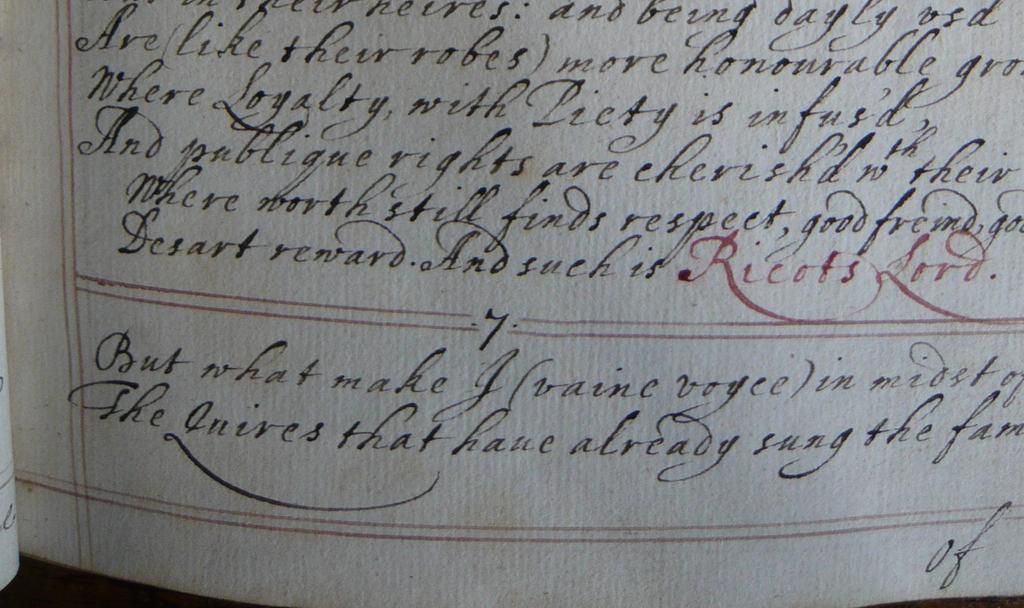 in their heires: and being dayly vsd
Are (like their robes) more honourable gro
Where Loyalty, with Piety is infus'd,
And publique rights are cherish'd wth their
Where worth still finds respect, good freind, goo
Desart reward. And such is Ricots Lord.
.7.
But what make I (vaine voyce) in midst of
The Quires that haue already sung the fam
of